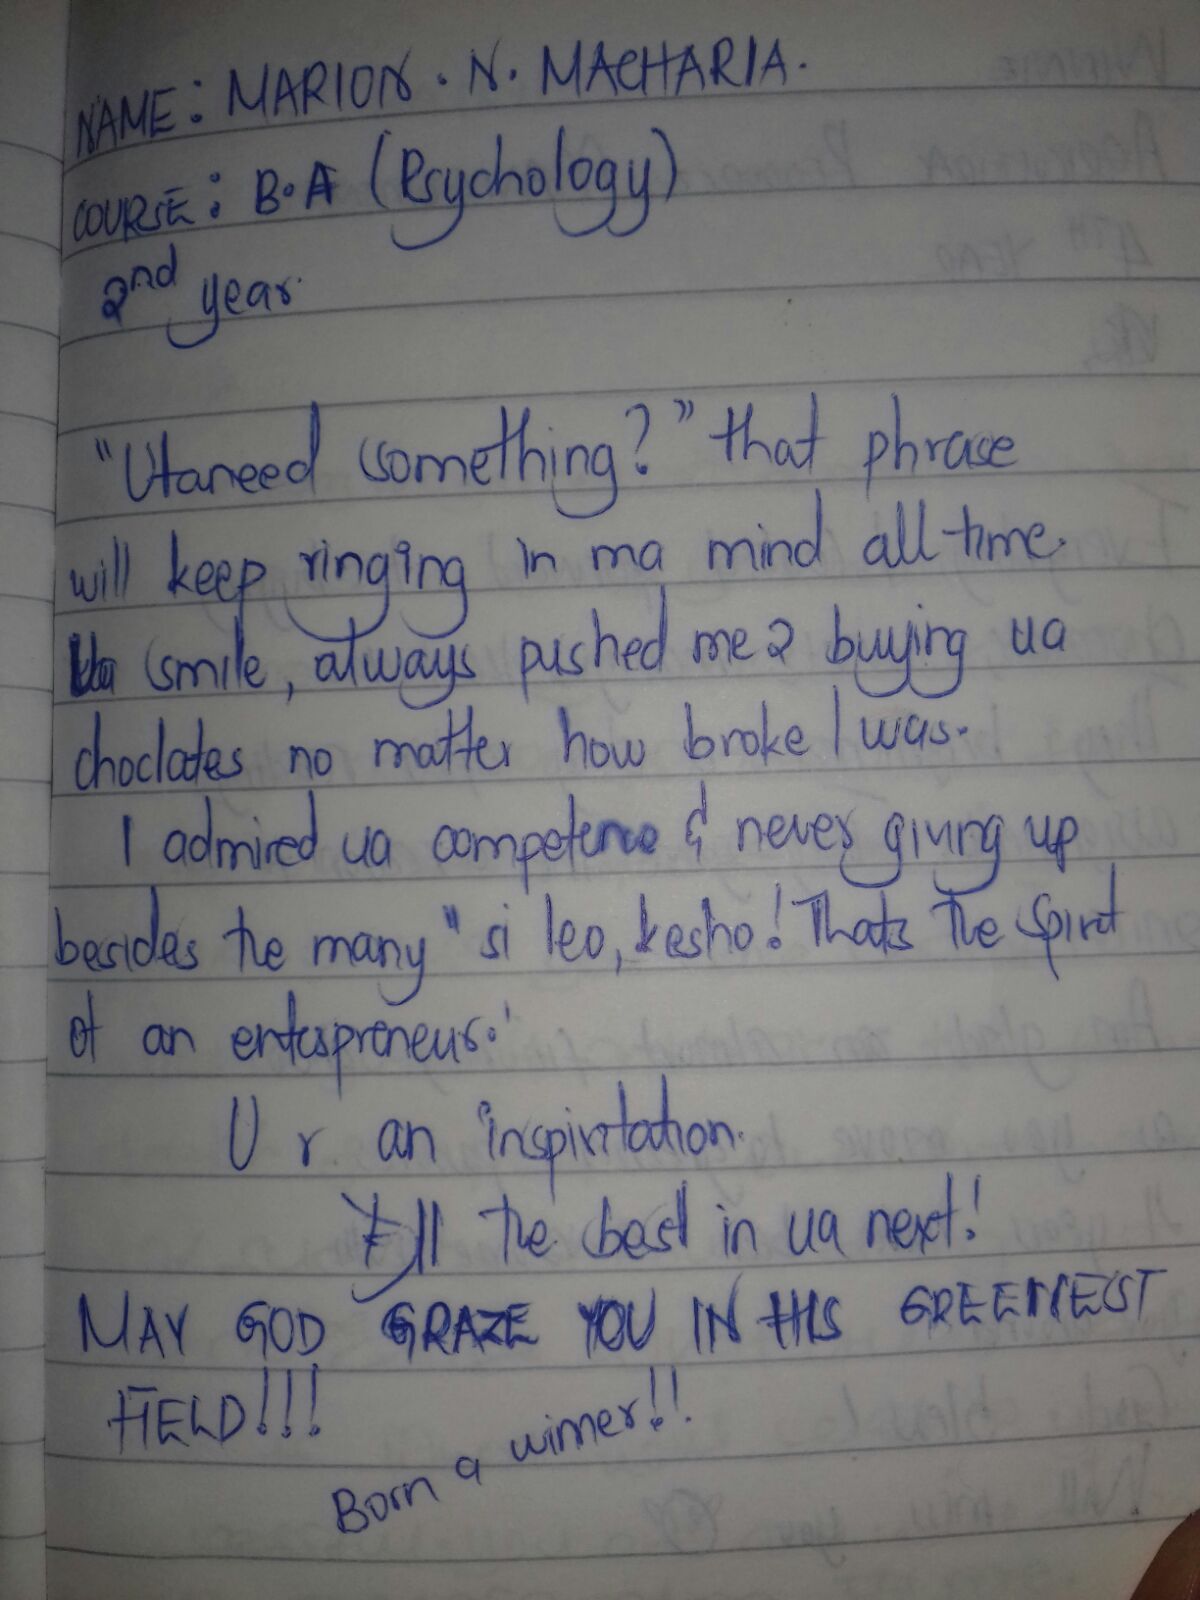 NAME: MARION . N. MACHARIA.
COURSE: B.A (Psychology)
2nd year.
"Utaneed something?" that phrase
will keep ringing in ma mind all time.
Ua smile, always pushed me 2 buying ua
choclates no matter how broke I was.
I admired ua competence & never giving up
besides the many "si leo, kesho! Thats the spirit
of an enterpreneur.'
U r an inspirtation.
All the best in ua next!
MAY GOD GRAZE YOU IN HIS GREENEST
FIELD!!!
Born a winner!!